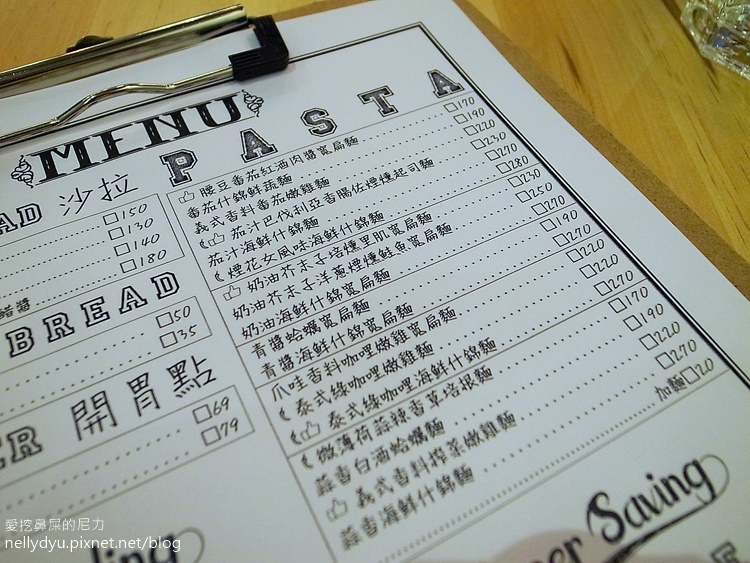 MENU
PASTA
腰豆番茄紅酒肉醬寬扁麵 □170
番茄什錦鮮蔬麵 □190
義式香料番茄嫩雞麵 □220
茄汁巴伐利亞香腸佐煙燻起司麵 □230
茄汁海鮮什錦麵 □270
煙花女風味海鮮什錦麵 □280
奶油芥末子培燻里肌寬扁麵 □230
奶油芥末子洋蔥煙燻鮭魚寬扁麵 □250
奶油海鮮什錦寬扁麵 □270
青醬蛤蠣寬扁麵 □190
青醬海鮮什錦寬扁麵 □270
爪哇香料咖哩嫩雞寬扁麵 □220
泰式綠咖哩嫩雞麵 □220
泰式綠咖哩海鮮什錦麵 □270
微薄荷蒜辣香草培根麵 □170
蒜香白酒蛤蠣麵 □190
義式香料榨菜嫩雞麵 □220
蒜香海鮮什錦麵 □270
加麵□20
AD 沙拉
□150
□130
□140
□180
BREAD
□50
□35
ER 開胃點
□69
□79
per Saving
愛挖鼻屎的尼力
nellydyu.pixnet.net/blog